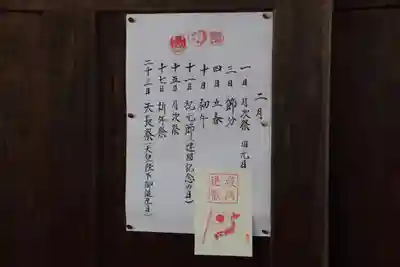 二月
一日 月次祭 旧元日
三日 節分
四日 立春
十日 初午
十一日 紀元節(建国記念の日)
十五日 月次祭
十七日 祈年祭
二十三日 天長祭(天皇陛下御誕生日)